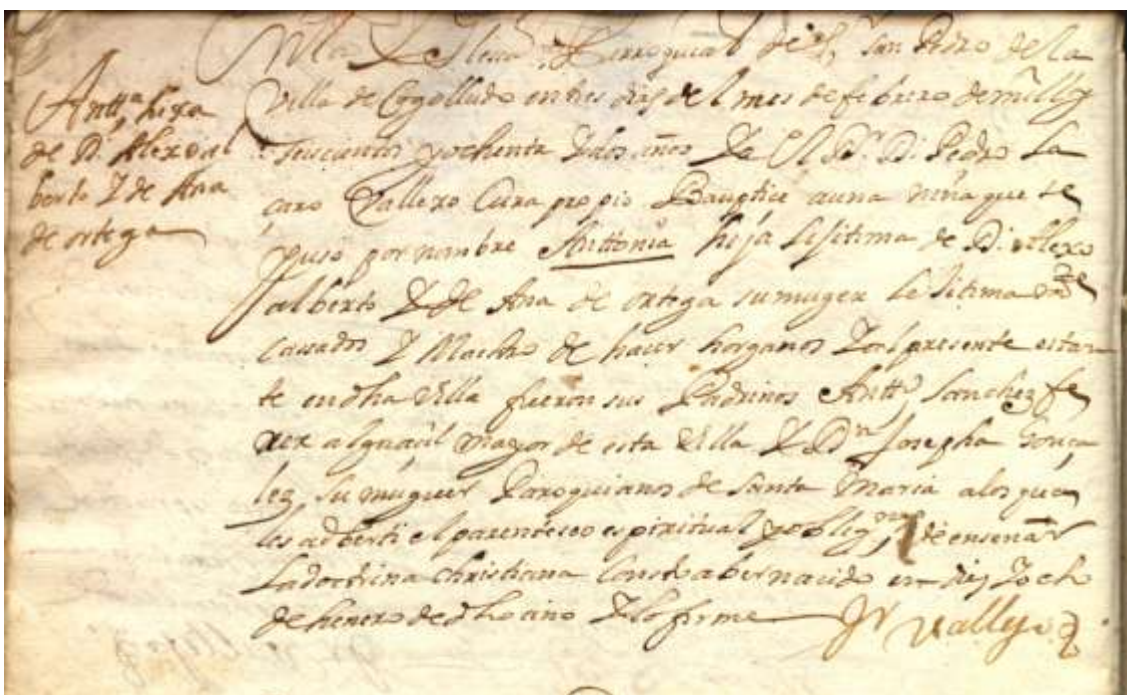 Antta hixa
de D. Alexo al
berto Y de Ana
de ortega
En la Yglesia Parroquial de Sr San Pedro de la
Villa de Cogolludo en tres dias del mes de febrero de mill y
seiscientos y ochenta Y dos años Yo El Dr D. Pedro La
caro Vallexo Cura propio Bauptice a una niña que se
puso por nombre Anttonia hija Lejitima de D. Alexo
alberto Y de Ana de ortega su muger Lejitima
cassados Y Maestro de hacer horganos Y al presente estan
te en dha Villa fueron sus Padrinos Antto Sanchez fe
rer alguacil mayor de esta Villa Y Da Josepha Gonça
lez su muguer Paroquianos de Santa Maria a los qua
les adberti el parentesco espiritual y obligon de enseñar
La doctrina christiana Consto aber nacido en diez Y ocho
de henero de dho año Y lo firme
Vallejo